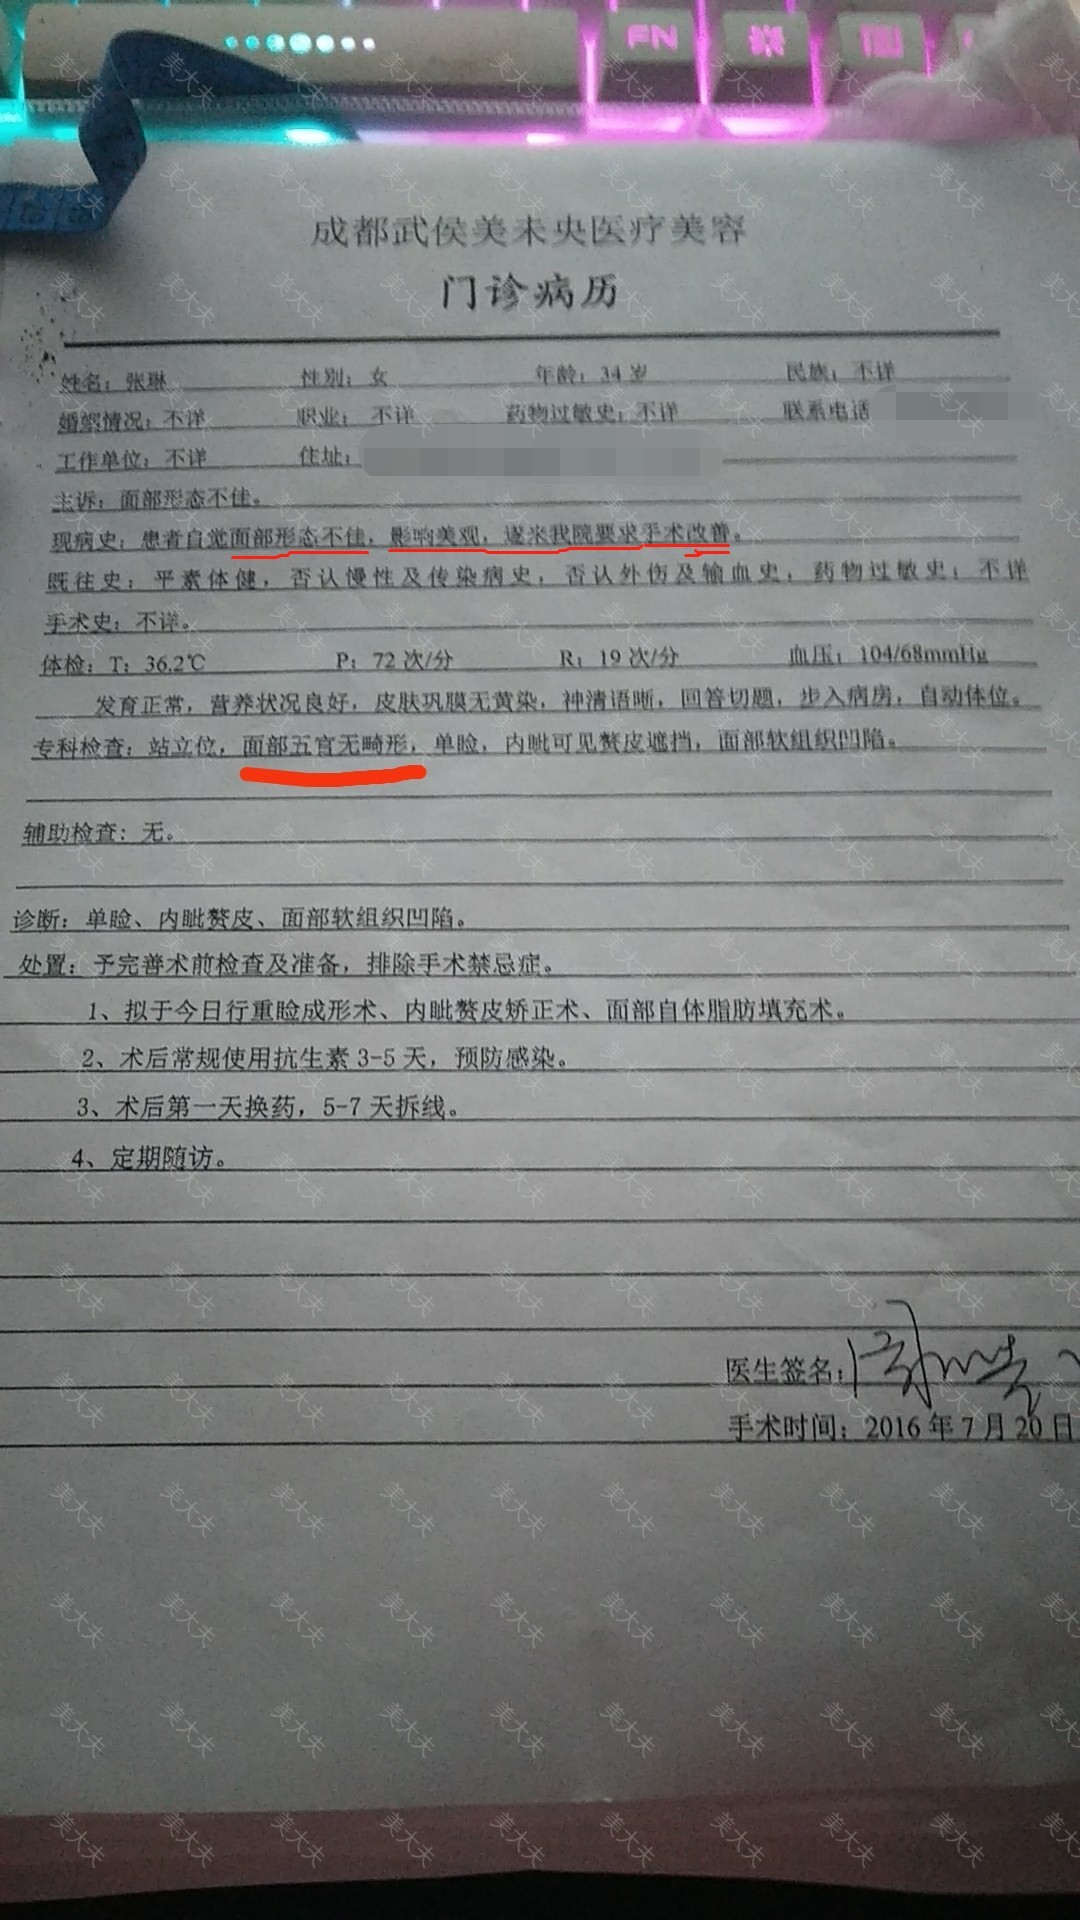 成都武侯美未央医疗美容
门诊病历
姓名：张琳 性别：女 年龄：34 岁 民族：不详
婚姻情况：不详 职业：不详 药物过敏史：不详 联系电话
工作单位：不详 住址：
主诉：面部形态不佳。
现病史：患者自觉面部形态不佳，影响美观，遂来我院要求手术改善。
既往史：平素体健，否认慢性及传染病史，否认外伤及输血史，药物过敏史：不详
手术史：不详。
体检：T：36.2℃ P：72 次/分 R：19 次/分 血压：104/68mmHg
发育正常，营养状况良好，皮肤巩膜无黄染，神清语晰，回答切题，步入病房，自动体位。
专科检查：站立位，面部五官无畸形，单睑，内眦可见赘皮遮挡，面部软组织凹陷。
辅助检查：无。
诊断：单睑、内眦赘皮、面部软组织凹陷。
处置：予完善术前检查及准备，排除手术禁忌症。
1、拟于今日行重睑成形术、内眦赘皮矫正术、面部自体脂肪填充术。
2、术后常规使用抗生素 3-5 天，预防感染。
3、术后第一天换药，5-7 天拆线。
4、定期随访。
医生签名：
手术时间：2016 年 7 月 20 日
美大夫